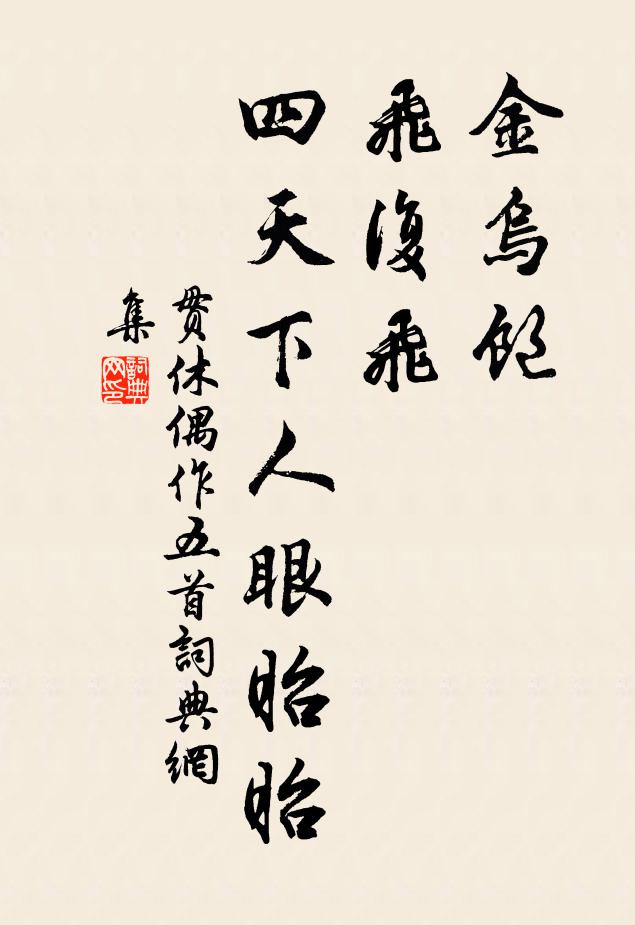 金烏
飛復飛
四天下人眼昭昭
貫休偶作五首詞典網
集
詞典
网印